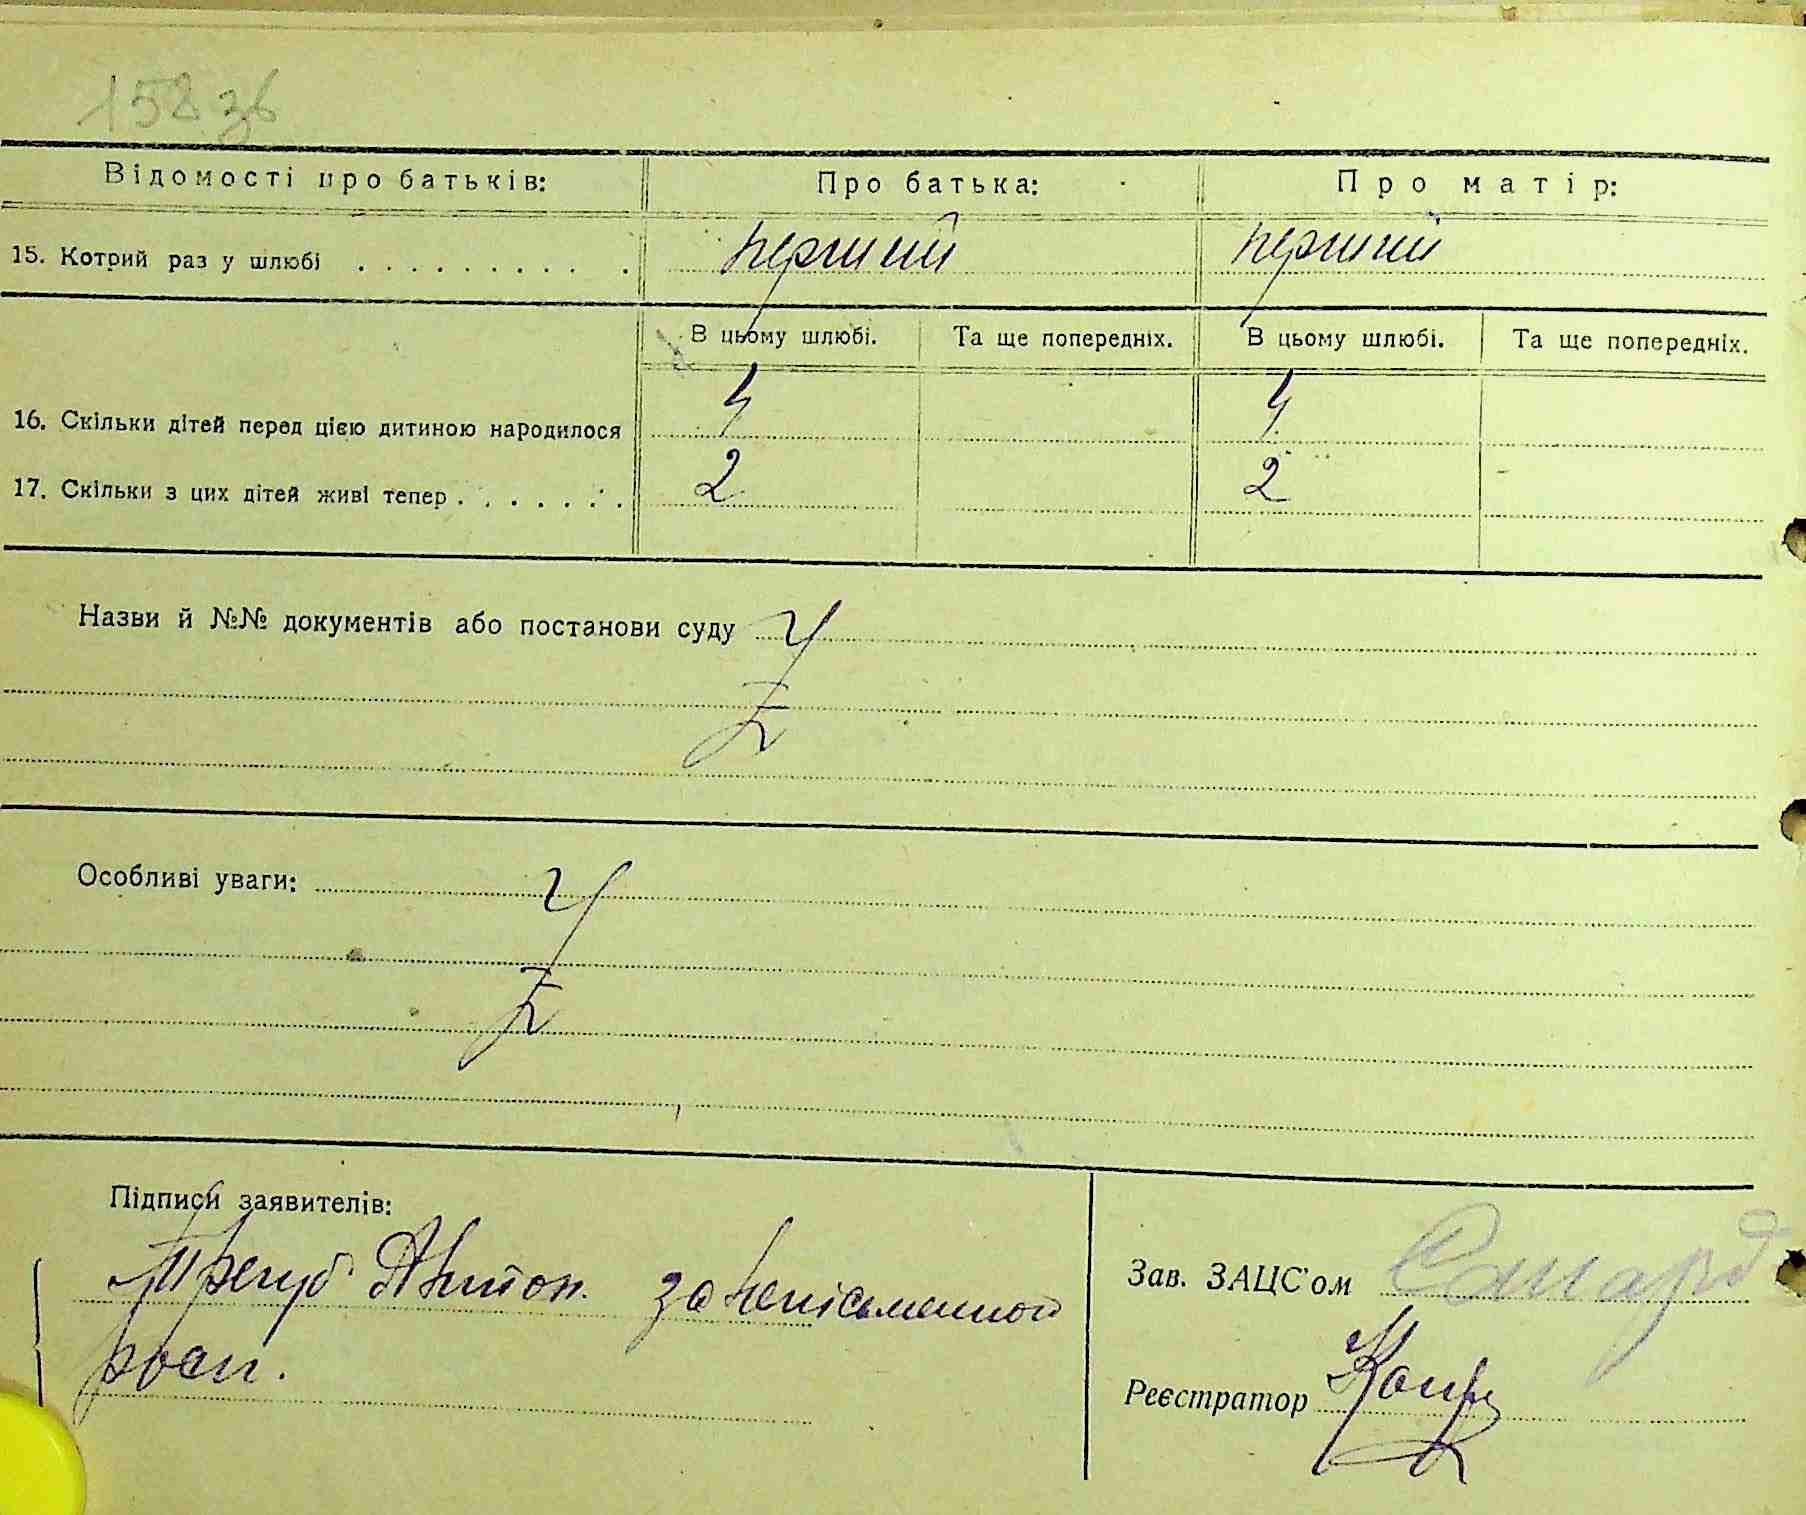 158 зв
Відомості про батьків: Про батька: Про матір:
15. Котрий раз у шлюбі . . . . . . . . . . перший перший
В цьому шлюбі. Та ще попередніх. В цьому шлюбі. Та ще попередніх.
16. Скільки дітей перед цією дитиною народилося 4 4
17. Скільки з цих дітей живі тепер . . . . . . . 2 2
Назви й №№ документів або постанови суду
Особливі уваги:
Підписи заявителів:
Трегуб Антон. за неписьменного
росп.
Зав. ЗАЦС'ом
Реєстратор